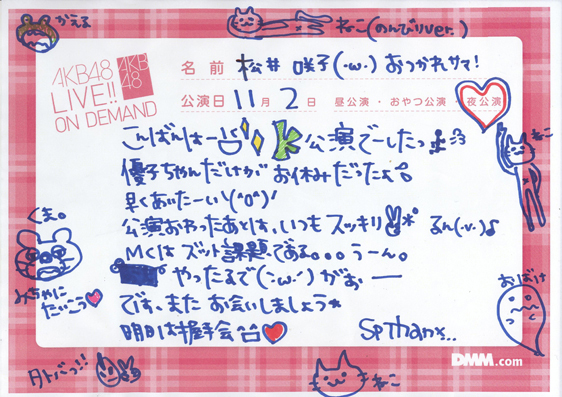 かえる
ねこ(のんびりver.)
AKB48
LIVE!!
ON DEMAND
AKB
48
名前 松井 咲子(・ω・)おつかれサマ!
公演日 11月 2日 昼公演・おやつ公演・夜公演
こんばんはー 公演でーしたっ
ねこ
優子ちゃんだけが お休みだったよ。
早くあいたーい\(^o^)/
公演おわったあとは、いつもスッキリ るん(・v・)♪
くま。
MCは ズット課題である。。。うーん。
やったるで(・ω・´) がおー
おばけ
みちゃに
たいこう
です、また お会いしましょう
明日は握手会 Sp Thanx..
DMM.com
ねこ